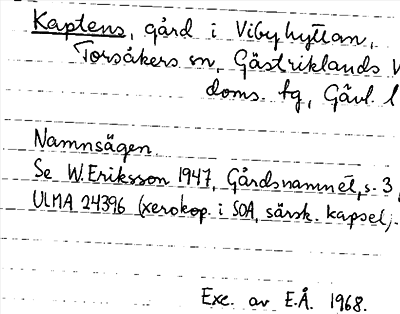 Kaptens, gård i Vibyhyttan,
Torsåkers sn, Gästriklands v
doms. tg, Gävl. l
Namnsägen.
Se W. Eriksson 1947, Gårdsnamnet, s. 3,
ULMA 24396 (xerokop. i SOA, särsk. kapsel).
Exc. av E.Å. 1968.